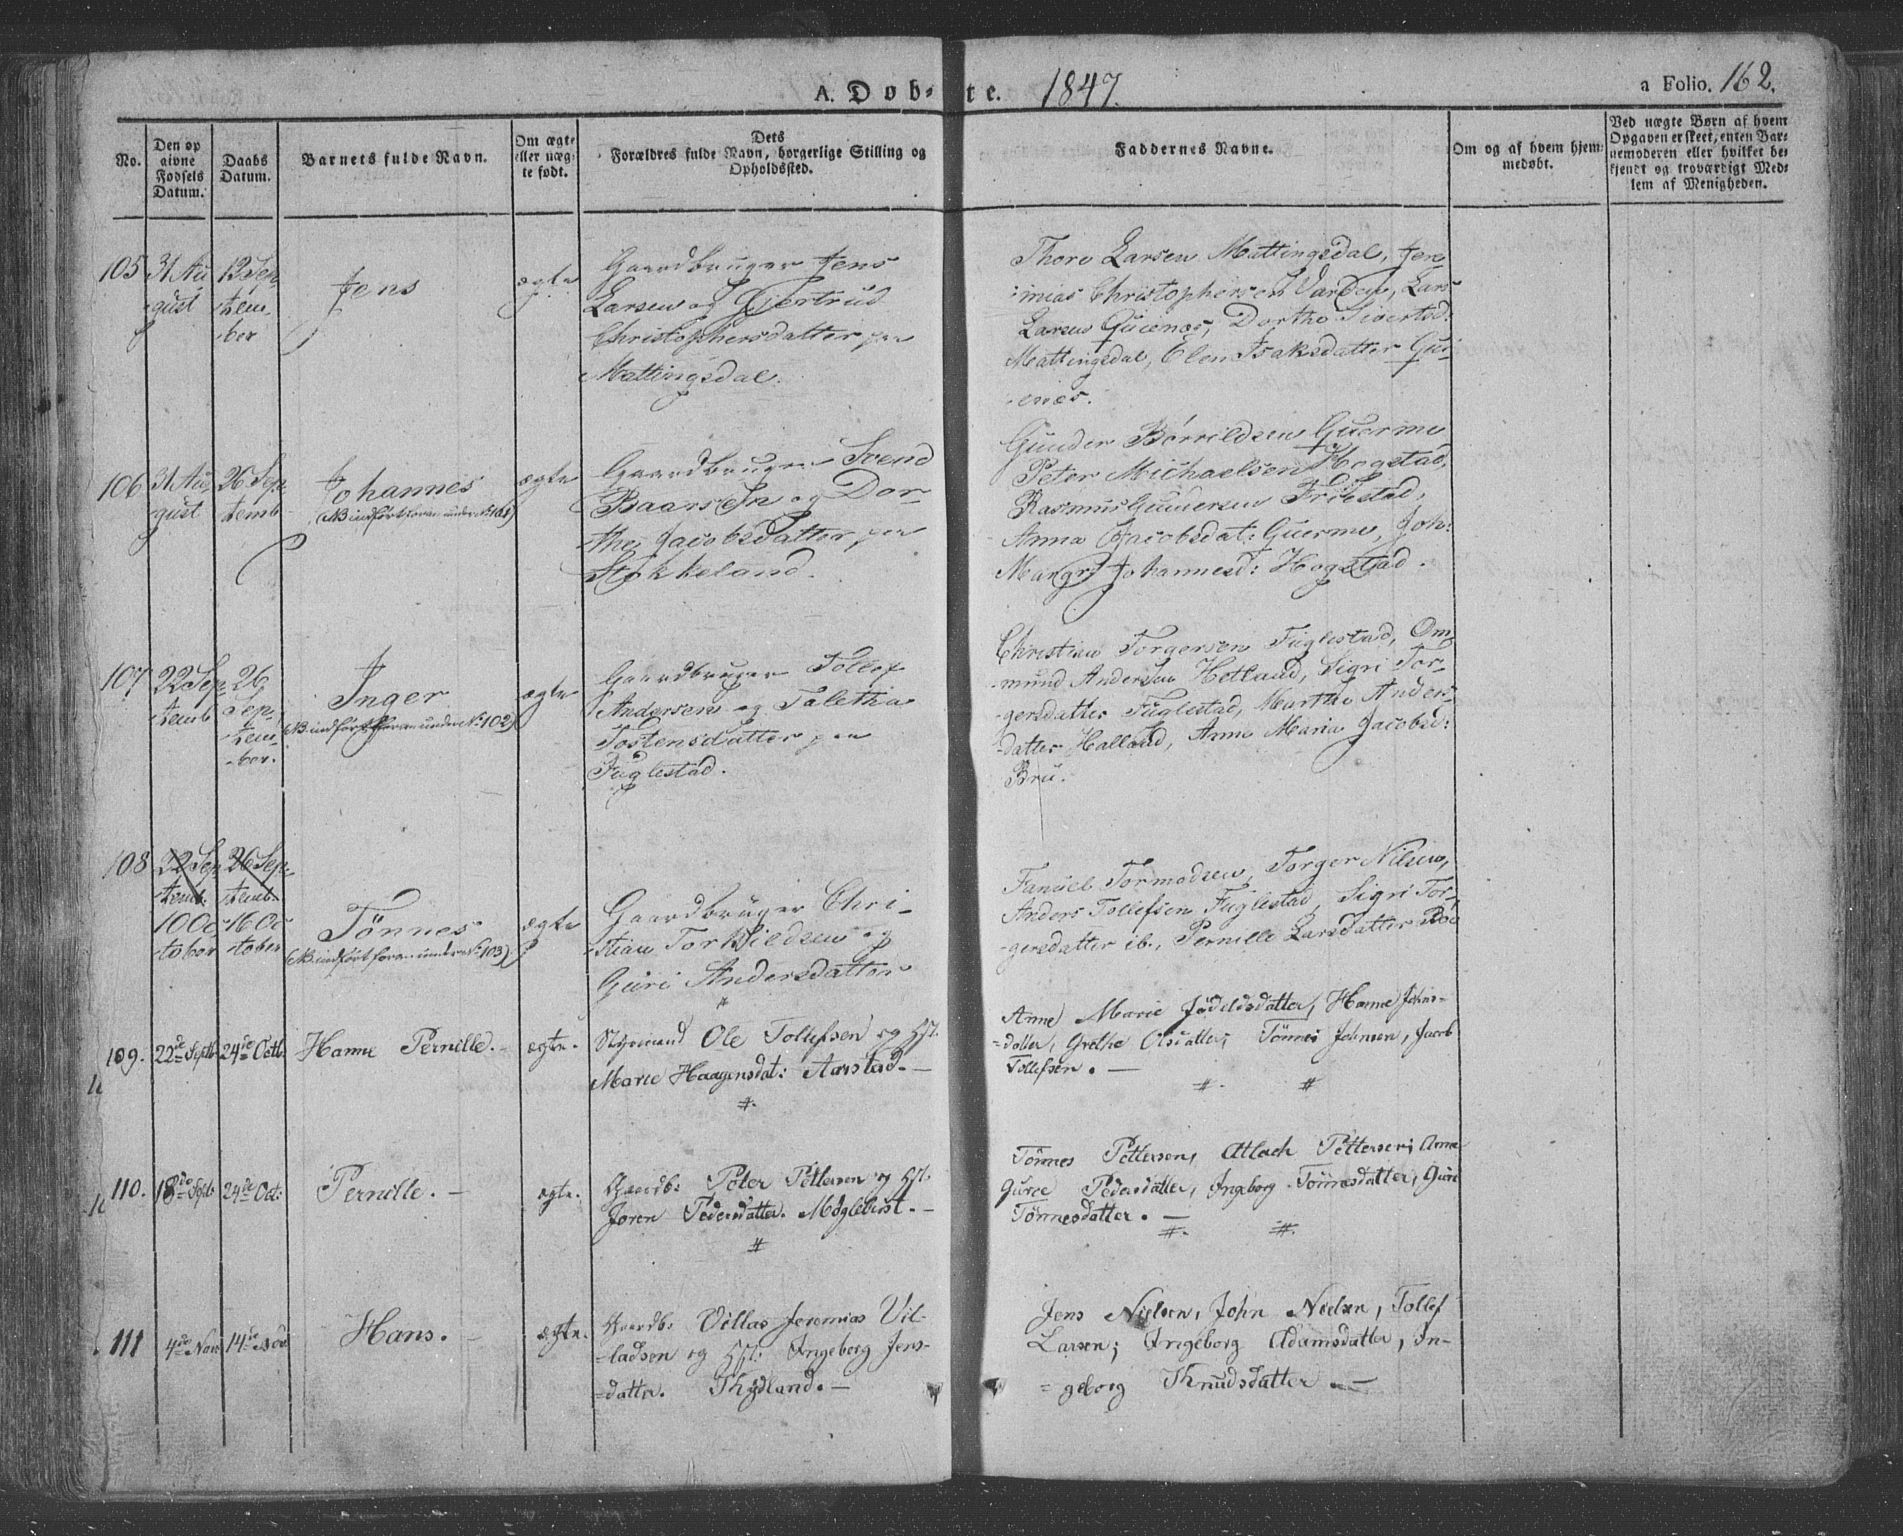 A. Døb- te. 1847. a Folio. 162.
No.
Den op
givne
Fødsels
Datum.
Daabs
Datum.
Barnets fulde Navn.
Om ægte
eller uæg-
te født.
Dets
Forældres fulde Navn, borgerlige Stilling og
Opholdssted.
Faddernes Navne.
Om og af hvem hjem-
medøbt.
Ved uægte Børn af hvem
Opgaven er skeet, enten Bar-
nemoderen eller hvilket be-
kjendt og troværdigt Med-
lem af Menigheden.
105
31 Au-
gust
12 Sep-
tem-
ber
Jens
ægte
Gaardbruger Jens
Larsen og Gjertrud
Christophersdatter paa
Mattingsdal.
Thore Larsen Mattingsdal, Jere-
mias Christophersen Varden, Lars
Larsen Dorthe Sivertsd:
Mattingsdal, Elen Isaksdatter
106
31 Au-
gust
26 Sep-
temb
Johannes
(NB indført foran under No 101)
ægte
Gaardbruger Svend
Baarsen og Dor-
the Jacobsdatter, paa
Stokkeland.
Gunder
Peter Michaelsen Hogstad,
Rasmus Gundersen
Anna Jacobsdat: Joh:
Margr: Johannesd: Hogstad.
107
22 Sep-
temb
26
Sep-
tem-
ber.
Inger
(NB indført foran under No 102)
ægte
Gaardbruger Tollef
Andersen og Taletha
Tostensdatter paa
Fuglestad.
Christian Torgersen Fuglestad, Om-
mund Andersen Hetland, Sigri Tor-
gersdatter Fuglestad, Marthe Anders-
datter Halland, Anne Maria Jacobsd:
Bru.
108
22 Sep-
temb.
10 Oc-
tober
26 Sep-
temb.
16 Oc-
tober
Tönnes
(NB indført foran under No 103)
ægte
Gaardbruger Chri-
stian Torkildsen og
Guri Andersdatter
Tormodsen, Torger Nilsen,
Anders Tollefsen Fuglestad, Sigri Tor-
gersdatter ib., Pernille Larsdatter
109.
22de Septb
24de Octb.
Hanne Pernille.
ægte.
Styrmand Ole Tollefsen og Hst.
Marie Haagensdat: Aarstad.
#.
Anne Marie Hanne Johns-
datter, Grethe Olsdatter; Tönnes Johnsen, Jacob
Tollefsen.
#. #
110.
18de Septb
24de Oct:
Pernille.
ægte.
Gaardb: Peter Pettersen og Hst.
Joren Pedersdatter. Møglebust.
#
Tönnes Pettersen, Atlach Pettersen; Anne
Gurie Pedersdatter, Ingeborg Tönnesdatter, Guri
Tönnesdatter.
#. #.
111
4de Nov
14de Nov
Hans.
ægte.
Gaardb: Villas Jeremias Vil-
ladsen og Hst: Ingeborg Jens-
datter. Thydland.
Jens Nielsen, John Nielsen, Tollef
Larsen; Ingeborg Adamsdatter, In-
geborg Knudsdatter.